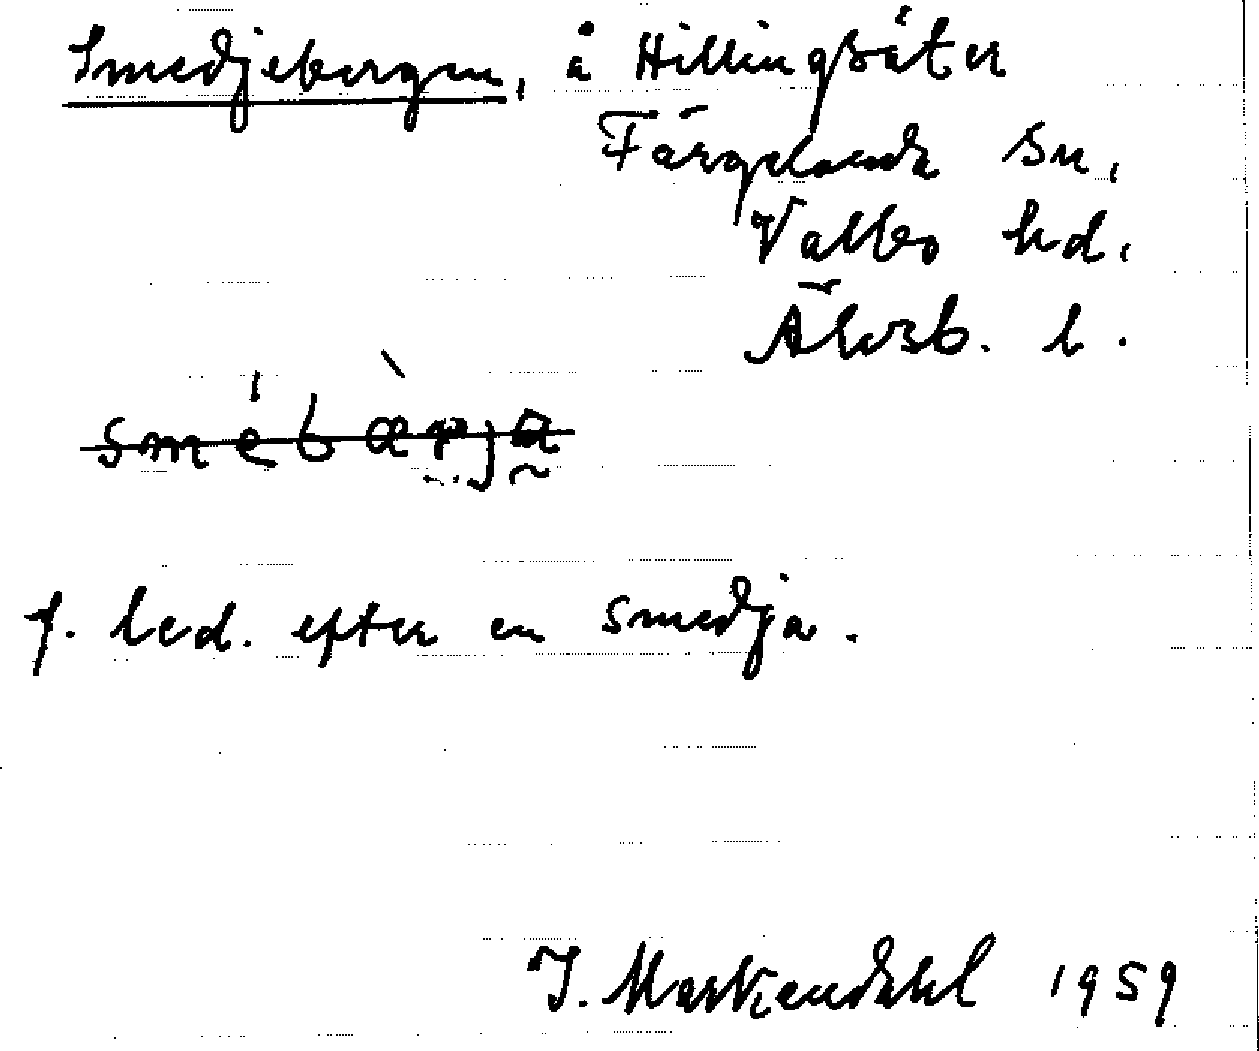 Smedjebergen, å Hillingsäter
Färgelanda sn,
Valbo hd.
Älvsb. l.
f. led. efter en smedja.
J. 1959